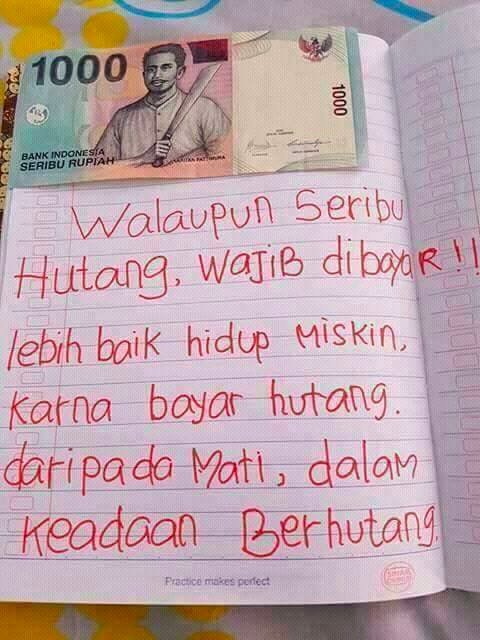 1000
BANK INDONESIA
SERIBU RUPIAH
PATTIMURA
1000
Walaupun Seribu
Hutang, WAJIB dibayaR!!
lebih baik hidup Miskin,
Karna bayar hutang.
daripada Mati, dalam
Keadaan Berhutang.
Practice makes perfect